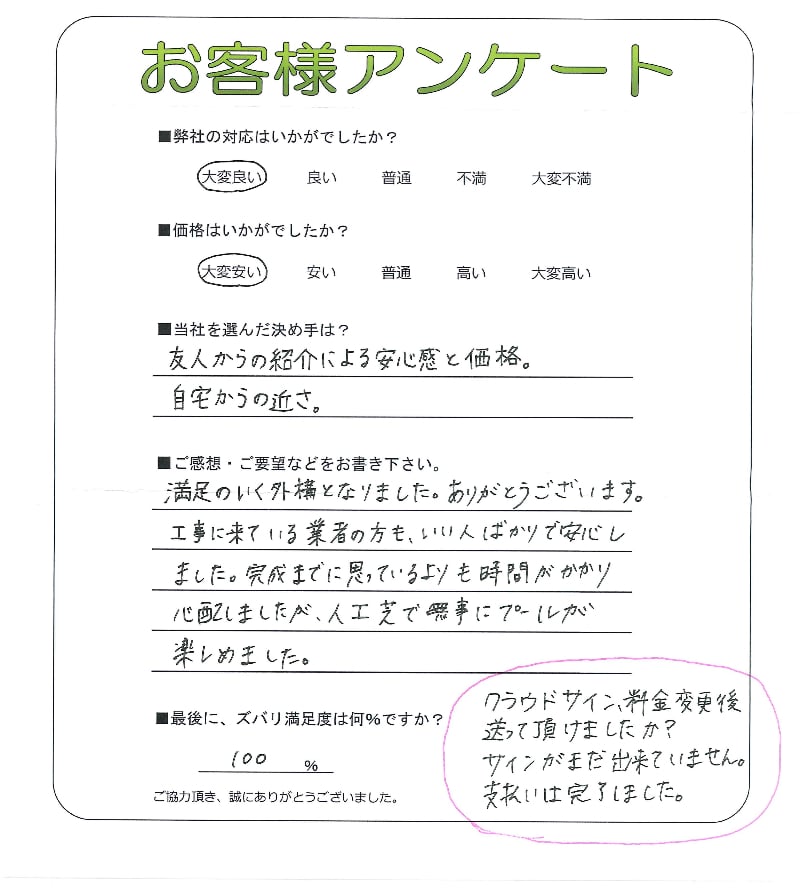 お客様アンケート
■弊社の対応はいかがでしたか？
大変良い 良い 普通 不満 大変不満
■価格はいかがでしたか？
大変安い 安い 普通 高い 大変高い
■当社を選んだ決め手は？
友人からの紹介による安心感と価格。
自宅からの近さ。
■ご感想・ご要望などをお書き下さい。
満足のいく外構となりました。ありがとうございます。
工事に来ている業者の方も、いい人ばかりで安心し
ました。完成までに思っているよりも時間がかかり
心配しましたが、人工芝で無事にプールが
楽しめました。
■最後に、ズバリ満足度は何％ですか？
100 %
ご協力頂き、誠にありがとうございました。
クラウドサイン、料金変更後
送って頂けましたか？
サインがまだ出来ていません。
支払いは完了しました。